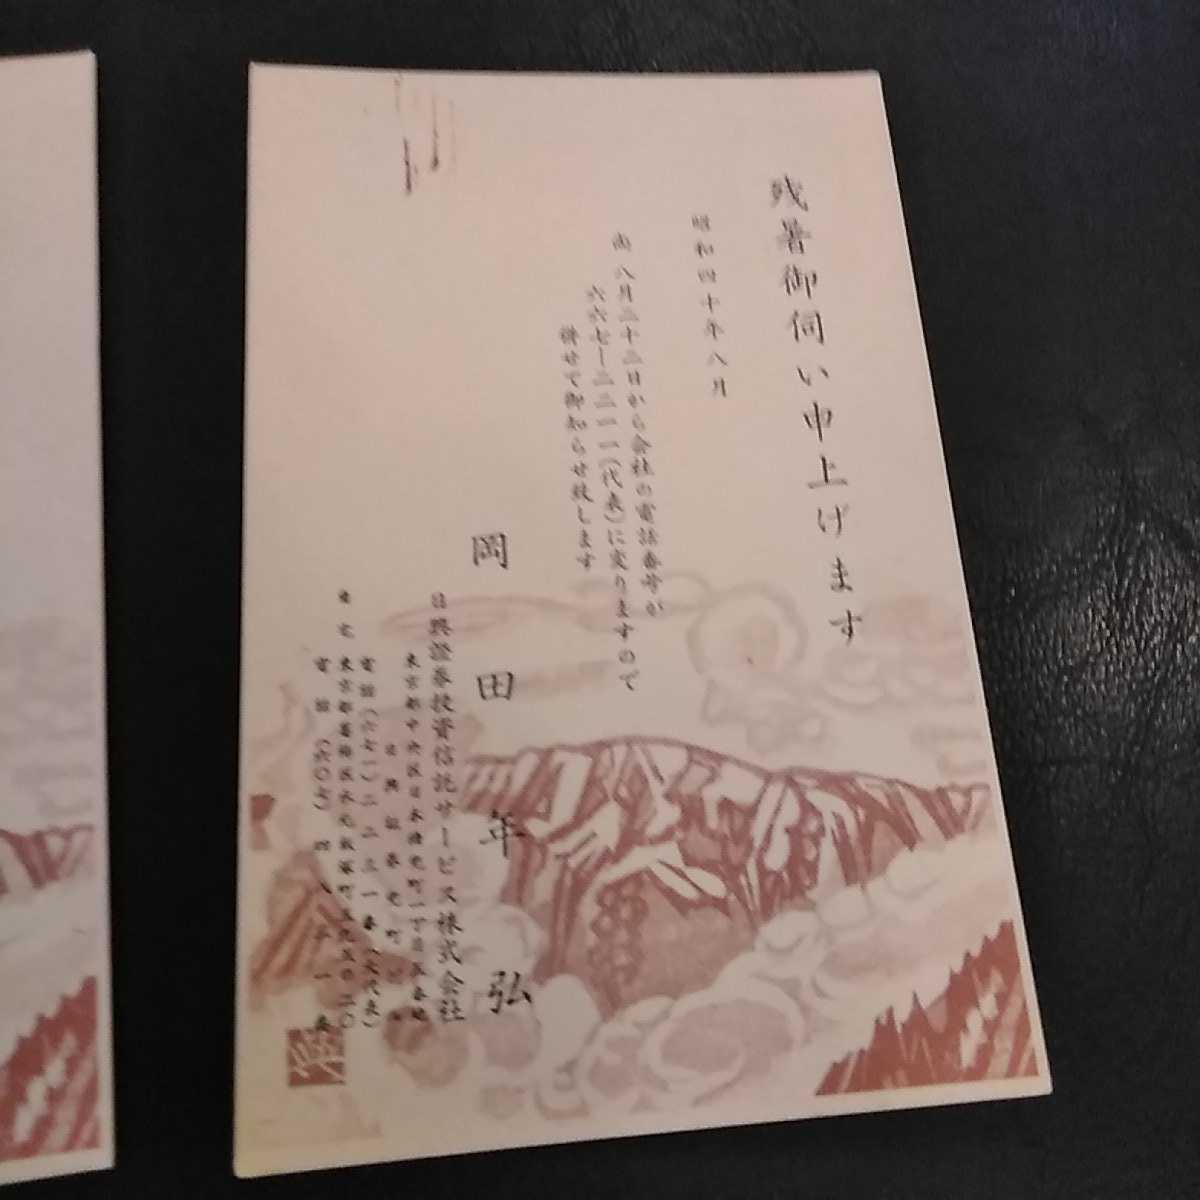 残暑御伺い申上げます
昭和四十年八月
尚 八月二十二日から会社の電話番号が
六六七ー二二一一(代表)に変りますので
併せて御知らせ致します
岡田年弘
日興證券投資信託サービス株式会社
東京都中央区日本橋
日興証券
電話(六七一)二二三一番(大代表)
東京都葛飾区水元飯塚町
電話(六〇七)四八